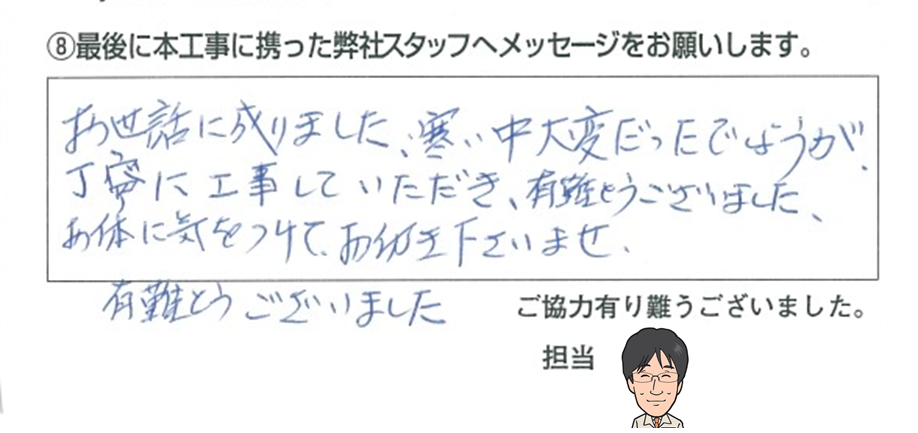 ⑧最後に本工事に携った弊社スタッフへメッセージをお願いします。
お世話に成りました、寒い中大変だったでしょうが、
丁寧に工事していただき、有難とうございました、
お体に気をつけて、お働き下さいませ.
有難とうございました
ご協力有り難うございました。
担当